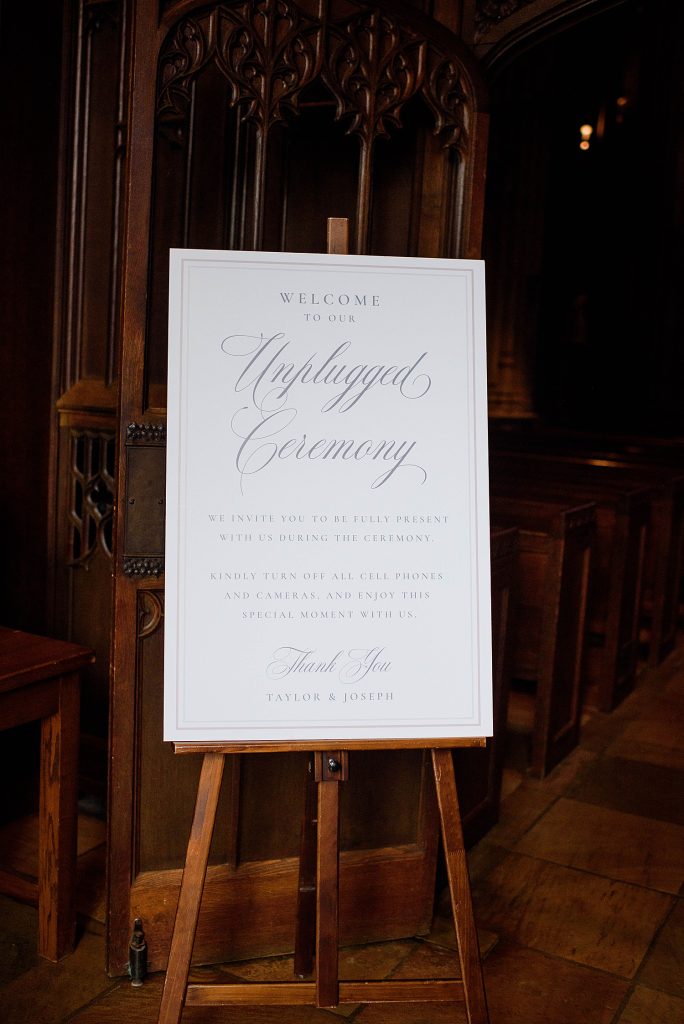 WELCOME
TO OUR
Unplugged
Ceremony
WE INVITE YOU TO BE FULLY PRESENT
WITH US DURING THE CEREMONY.
KINDLY TURN OFF ALL CELL PHONES
AND CAMERAS, AND ENJOY THIS
SPECIAL MOMENT WITH US.
Thank You
TAYLOR & JOSEPH